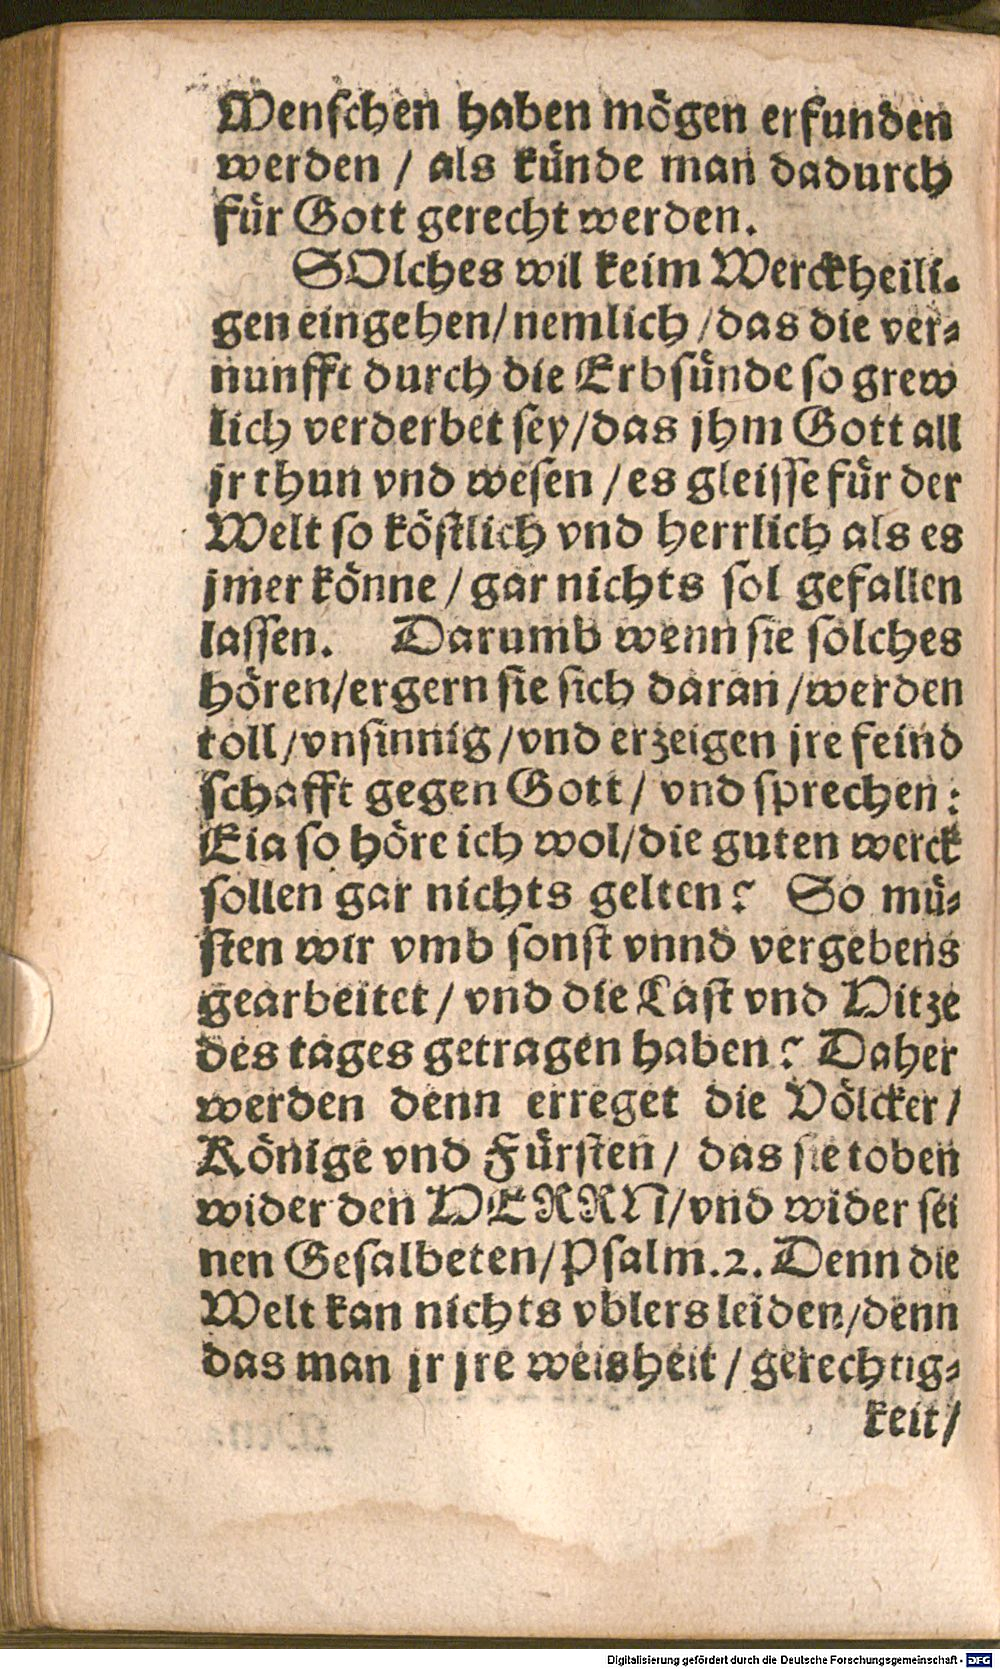 Menschen haben mögen erfunden
werden / als künde man dadurch
für Gott gerecht werden.
SOlches wil keim Werckheili-
gen eingehen/nemlich /das die ver-
nunfft durch die Erbsünde so grew
lich verderbet sey/das jhm Gott all
jr thun vnd wesen /es gleisse für der
Welt so köstlich vnd herrlich als es
jmer könne /gar nichts sol gefallen
lassen. Darumb wenn sie solches
hören/ergern sie sich daran /werden
toll/vnsinnig /vnd erzeigen jre feind
schafft gegen Gott/ vnd sprechen:
Eia so höre ich wol/die guten werck
sollen gar nichts gelten? So mü-
sten wir vmb sonst vnnd vergebens
gearbeitet / vnd die Last vnd Hitze
des tages getragen haben? Daher
werden denn erreget die Völcker/
Könige vnd Fürsten/ das sie toben
wider den HERRN/vnd wider sei
nen Gesalbeten/Psalm.2. Denn die
Welt kan nichts vblers leiden/denn
das man jr jre weisheit / gerechtig-
keit/
Digitalisierung gefördert durch die Deutsche Forschungsgemeinschaft - DFG